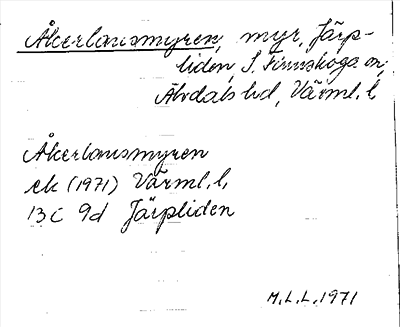 Åkerlausmyren, myr, Järp-
liden, S. Finnskoga sn,
Älvdals hd, Värml. l.
Åkerlausmyren
ek (1971) Värml. l.
13C 9d Järpliden
M.L.L. 1971